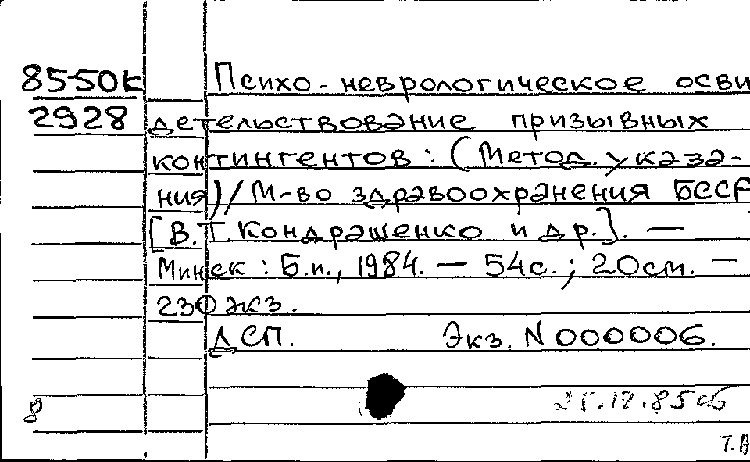 85-50к Психо-неврологическое осви
2928 детельствование призывных
контингентов: (Метод. указа-
ния) / М-во здравоохранения БССР
[В.Т. Кондрашенко и др.]. —
Минск: Б.и., 1984. — 54с.; 20см. —
230 экз.
ДСП. Экз. N 000006.
8 25.12.85